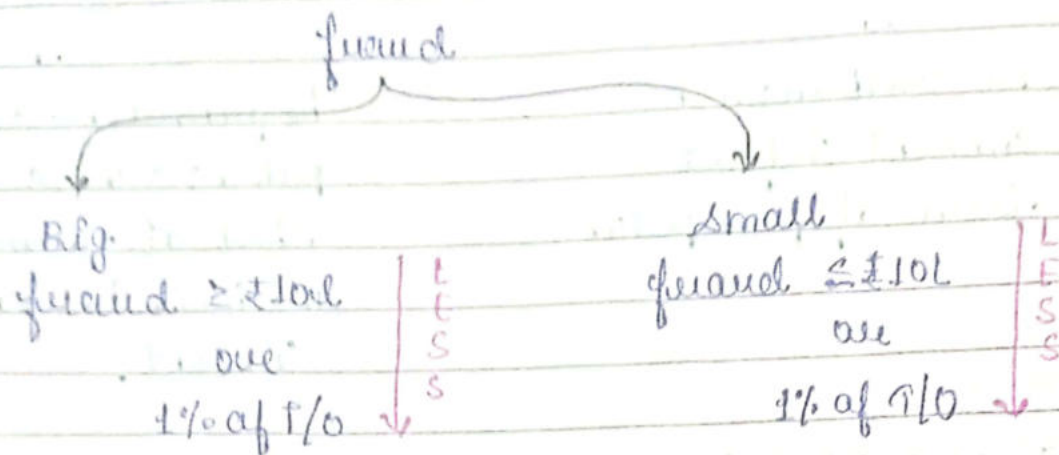 fraud
Big
fraud ≥ ₹10L
or
1% of T/O
LESS
small
fraud ≤ ₹10L
or
1% of T/O
LESS